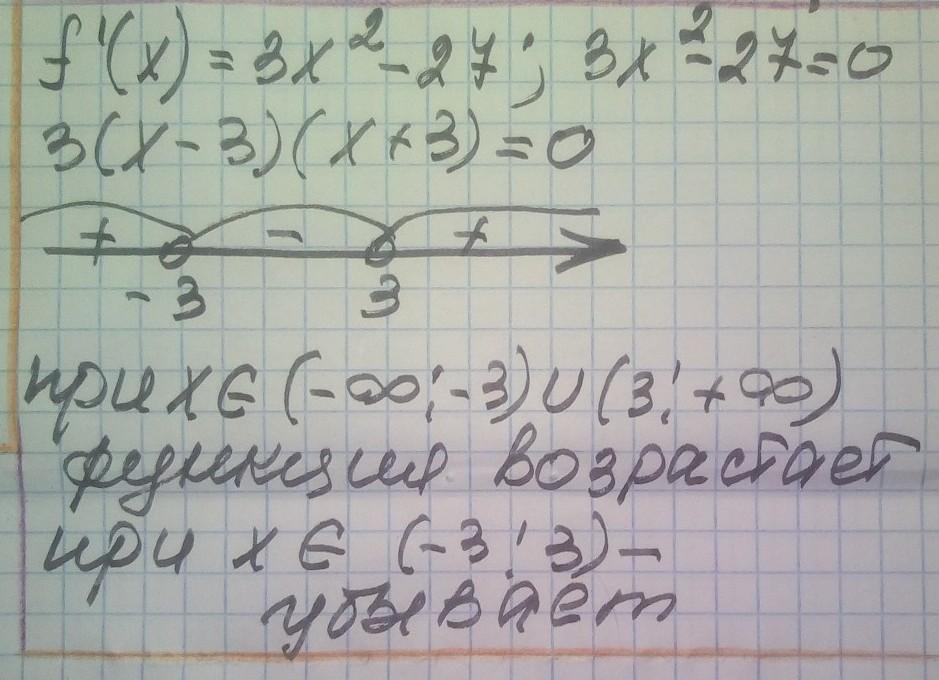 f'(x) = 3x² - 27; 3x² - 27 = 0
3(x - 3)(x + 3) = 0
+ - +
-3 3
при x ∈ (-∞; -3) ∪ (3; +∞)
функция возрастает
при x ∈ (-3; 3) -
убывает